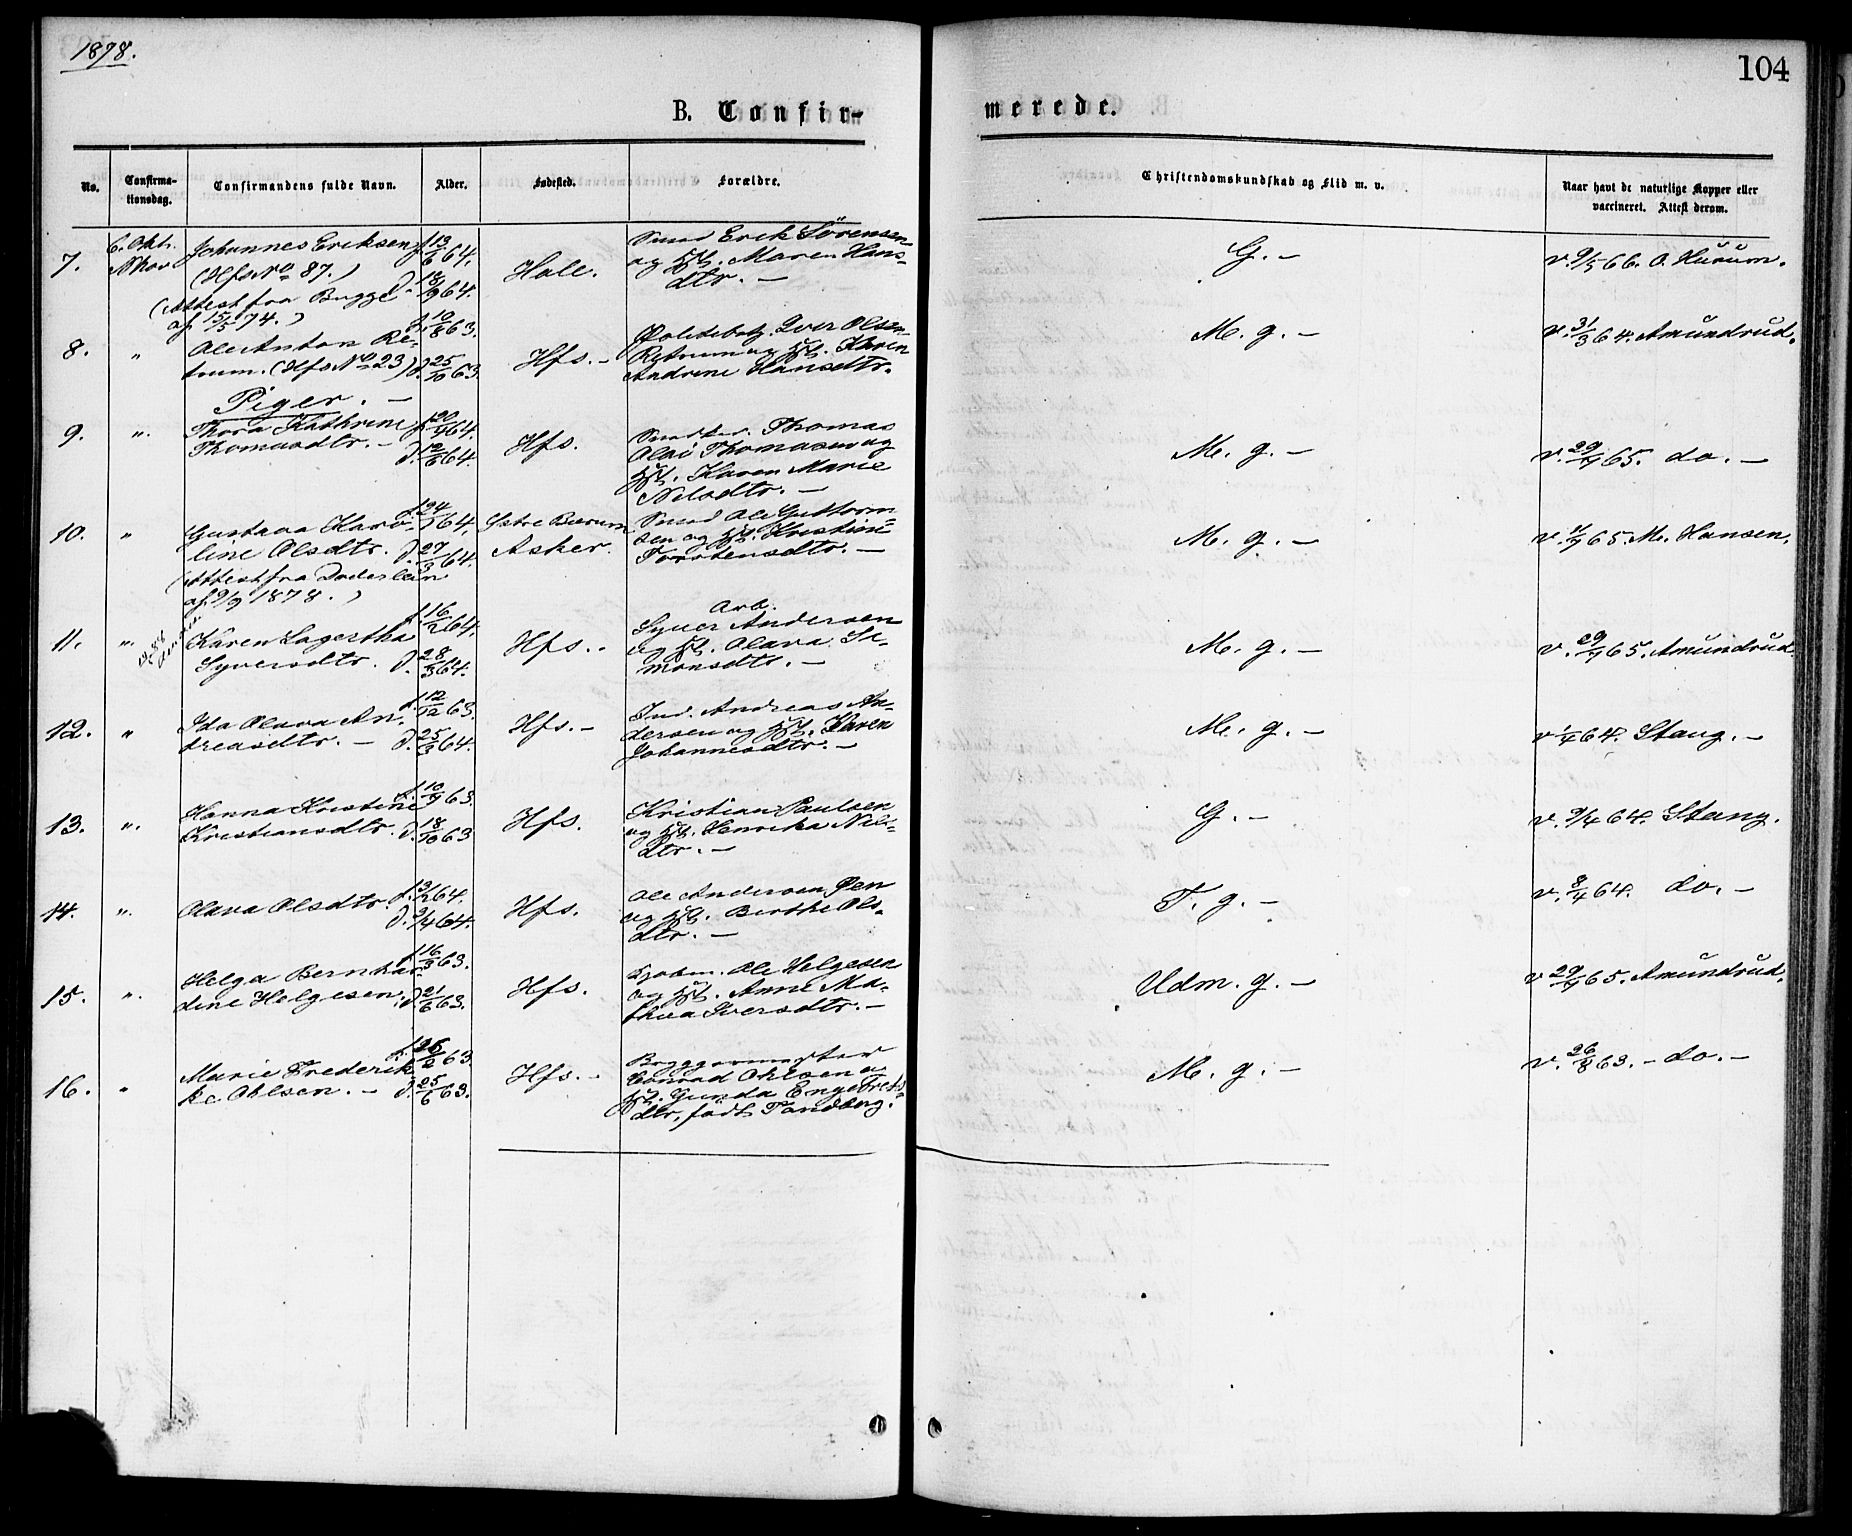 1878.
104
B. Confir-
merede.
No.
Confirma-
tionsdag.
Confirmandens fulde Navn.
Alder.
Fødested.
Forældre.
Christendomskundskab og Flid m. v.
Naar havt de naturlige Kopper eller
vaccineret. Attest derom.
7.
6. Okt.
Johannes Eriksen
(Hfs No 87.)
(Attest fra Bugge
af 15/5 74.)
f. 13/6 64.
d. 18/9 64.
Hole.
Smed Erik Sörensen
og Hst. Maren Hans-
dtr. —
G. —
v. 9/5 66. O. Huuum.
8.
"
Ole Anton Re-
trum. (Hfs No 23)
f. 10/8 63.
d. 25/10 63.
Hfs. —
Politibetj. Iver Olsen
Retrum og Hst. Karen
Andrine Hansdtr.
M. g. —
v. 31/3 64. Amundrud.
Piger. —
9.
".
Thora Kathrine
Thomasdtr. —
f. 20/4 64.
d. 12/6 64.
Hfs.
Snedker Thomas
Olai Thomasen og
Hst. Karen Marie
Nilsdtr. —
M. g. —
v. 29/7 65. do. —
10.
"
Gustava Karo-
line Olsdtr.
(Attest fra Döderlein
af 9/9 1878.)
f. 24/1 64.
d. 27/3 64.
Östre Bærum
Asker.
Smed Ole Guttorm-
sen og Hst. Kristine
Torstensdtr. —
M. g. —
v. 11/9 65. M. Hansen.
11.
".
Karen Lagertha
Syversdtr.
f. 16/2 64.
d. 28/3 64.
Hfs. .
Arb.
Syver Andersen
og Hst. Olava Si-
monsdtr. —
M. g. —
v. 29/7 65. Amundrud.
12.
"
Ida Olava An-
dreasdtr. —
f. 12/12 63.
d. 25/3 64.
Hfs. —
Ind. Andreas An-
dersen og Hst. Karen
Johannesdtr. —
M. g. —
v. 1/4 64. Stang. —
13.
".
Hanna Kristine
Kristiansdtr.
f. 10/9 63.
d. 18/10 63
Hfs.
Kristian Paulsen
og Hst. Henrika Nils-
dtr. —
G. —
v. 9/4 64. Stang.
14.
".
Olava Olsdtr.
f. 3/2 64.
Hfs.
Ole Andersen Øen
og Hst. Berthe Ols-
dtr. —
T. g. —
v. 8/4 64. do. —
15.
".
Helga Bernhar-
dine Helgesen.
f. 16/3 63.
d. 21/6 63.
Hfs.
Kjöbm. Ole Helgesen
og Hst. Anne Ma-
thea Iversdtr. —
Udm. g. —
v 29/7 65. Amundrud.
16.
"
Marie Frederik-
ke Ohlsen. —
f. 26/2 63.
d. 25/6 63.
Hfs. —
Byggemester
Conrad Ohlsen og
Hst. Gunda Engebrets-
dtr, födt Tandberg.
M. g. —
v. 26/8 63. — do. —